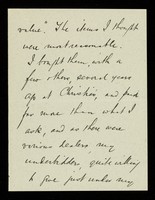 value". The items I thought
were most reasonable.
I bought them, with a
few others, several years
ago at Christies, and paid
far more than what I
ask, and as there were
various dealers my
underbidders, quite willing
to give just under my